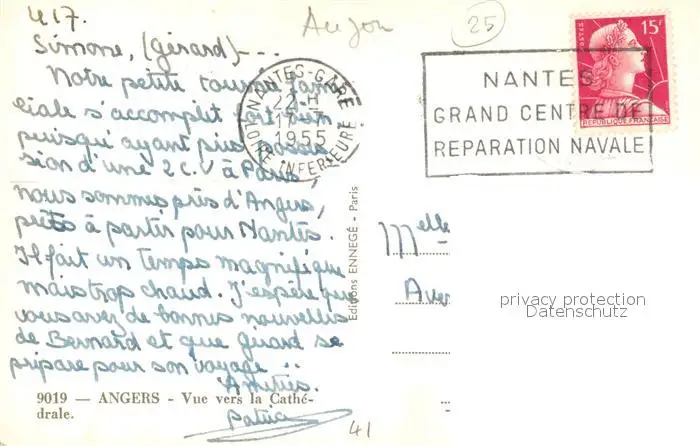 le 17.
Simone, (Gérard) - - -
Notre petite tournée fami
ciale s'accomplit fort bien
puisqu'ayant pris posses
sion d'une 2 C.V à Paris,
nous sommes près d'Angers,
prêts à partir pour Nantes.
Il fait un temps magnifique
mais trop chaud. J'espère que
vous avez de bonnes nouvelles
de Bernard et que Girard se
prépare pour son voyage..
Amitiés.
9019 — ANGERS - Vue vers la Cathé-
drale.
41
Editions ENNEGÉ - Paris
25
NANTES-GARE
22 H
1955
LOIRE INFERIEURE
NANTES
GRAND CENTRE DE
REPARATION NAVALE
POSTES
15F
REPUBLIQUE FRANÇAISE
Melle
privacy protection
Datenschutz